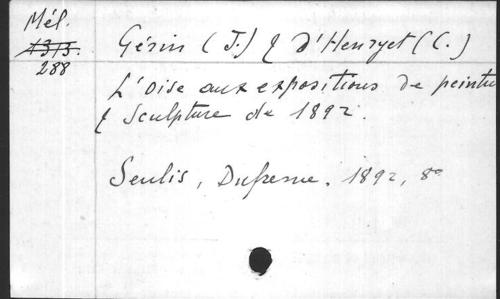 Mél.
1313
288
Gérin (J.) & d'Henryet (C.)
L'Oise aux expositions de peintu
& Sculpture de 1892.
Senlis, Dufresne. 1892, 8°